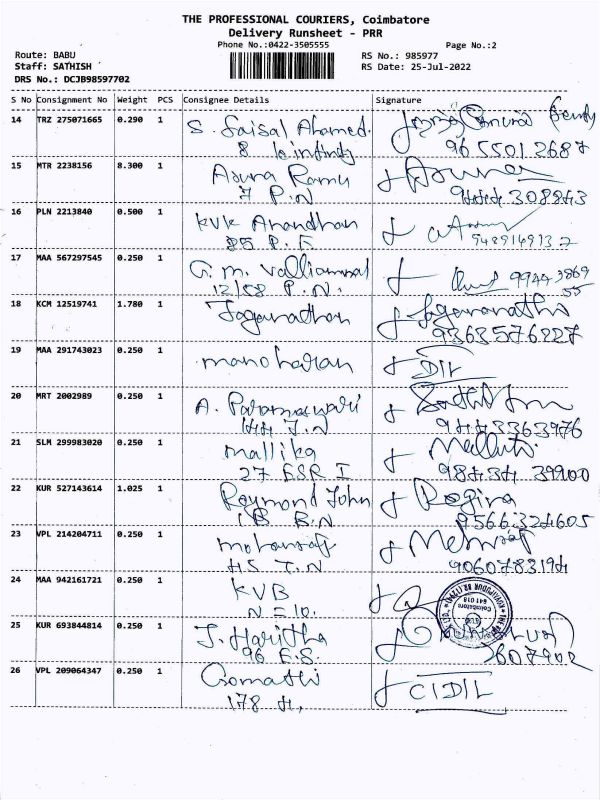 THE PROFESSIONAL COURIERS, Coimbatore
Delivery Runsheet - PRR
Phone No.:0422-3505555
Page No.:2
Route: BABU
RS No.: 985977
Staff: SATHISH
RS Date: 25-Jul-2022
DRS No.: DCJB98597702
S No Consignment No Weight PCS Consignee Details Signature
14 TRZ 275071665 0.290 1 S. Faisal Ahamed.
8 96 5501 2687
15 MTR 2238156 8.300 1 Asura Ramu
7 P.N 9444 308843
16 PLN 2213840 0.500 1 KVK Anandhan
85 P. F 9489149132
17 MAA 567297545 0.250 1 G. m. Valliammal 99443869
12/58 P.N. 55
18 KCM 12519741 1.780 1 Jaganathan Jaganathi
9363576227
19 MAA 291743023 0.250 1 manoharan DIL
20 MRT 2002989 0.250 1 A. Parameswari
144 J.N 9443363976
21 SLM 299983020 0.250 1 mallika
27 ESR I 98434 39900
22 KUR 527143614 1.025 1 Raymond John Regina
1B B.N 9566324605
23 VPL 214204711 0.250 1 mohanraj
H5 T.N 9060783194
24 MAA 942161721 0.250 1 KVB
N = 10.
Coimbatore
641 018
25 KUR 693844814 0.250 1 J. Haritha
96 E.S. 2607902
26 VPL 209064347 0.250 1 Gomathi CIDIL
178 H,